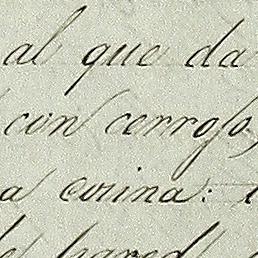 al que da
con cerrojo,
a cosina:
pared